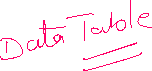 Data Table